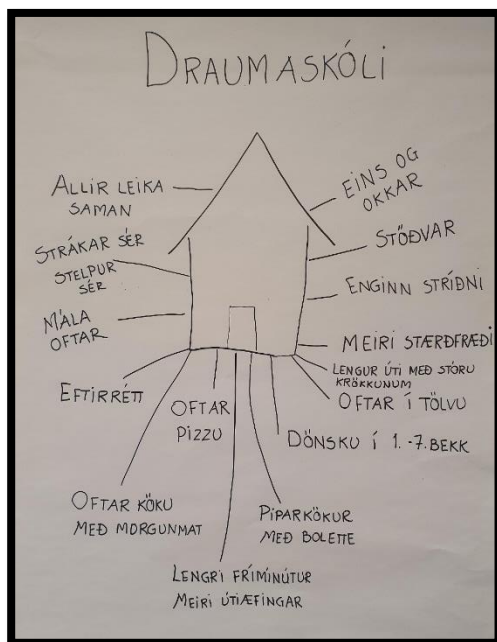 DRAUMASKÓLI
ALLIR LEIKA
SAMAN
STRÁKAR SÉR
STELPUR
SÉR
MÁLA
OFTAR
EFTIRRÉTT
OFTAR
PIZZU
OFTAR KÖKU
MEÐ MORGUNMAT
LENGRI FRÍMÍNÚTUR
MEIRI ÚTIÆFINGAR
PIPARKÖKUR
MEÐ BOLETTE
DÖNSKU Í 1.-7. BEKK
OFTAR Í TÖLVU
LENGUR ÚTI MEÐ STÓRU
KRÖKKUNUM
MEIRI STÆRÐFRÆÐI
ENGINN STRÍÐNI
STÖÐVAR
EINS OG
OKKAR